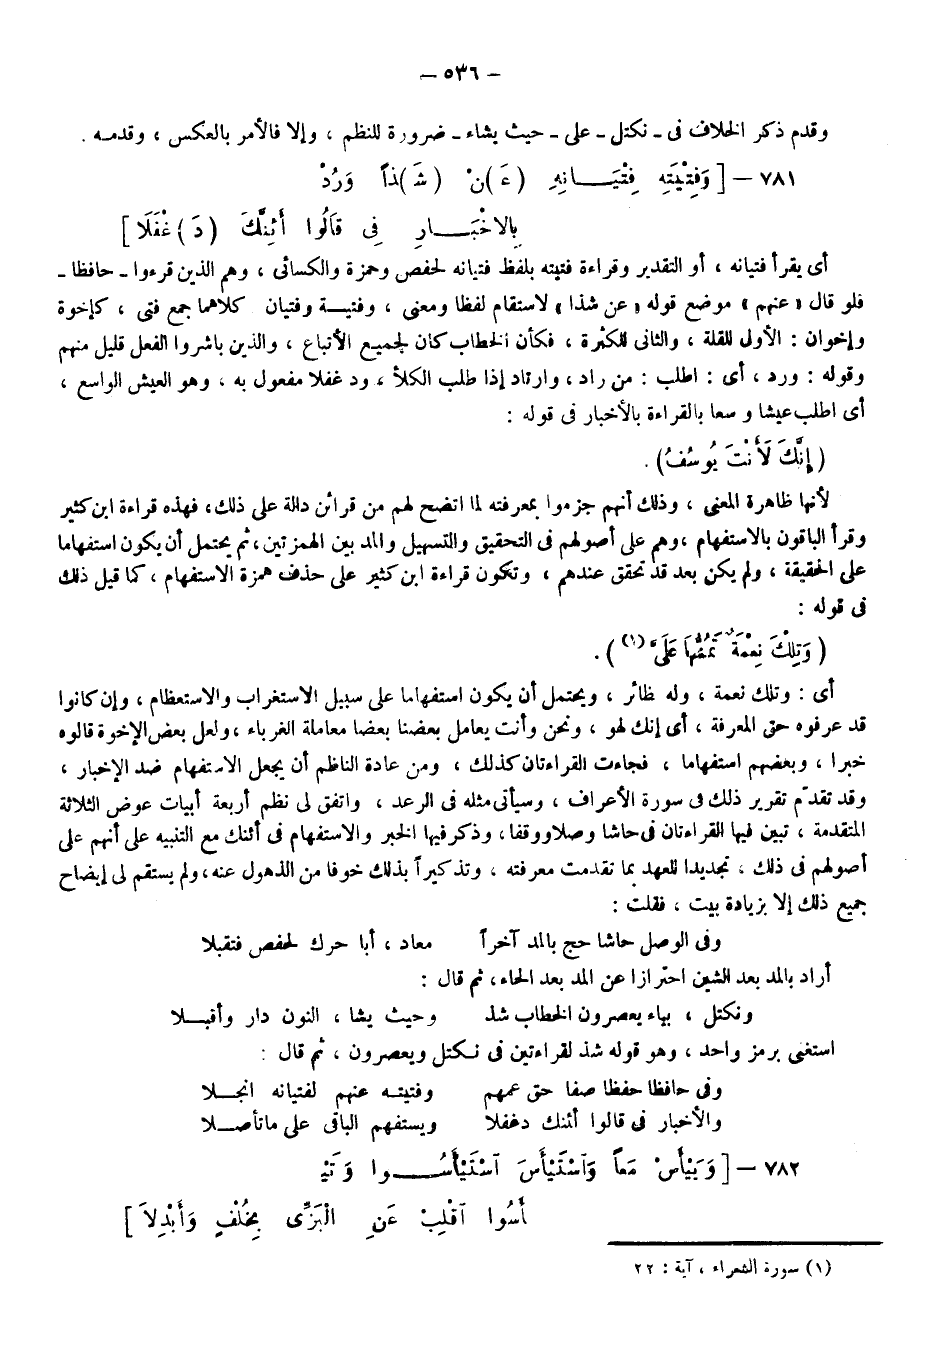 – ٥٣٦ –
وقدم ذكر الخلاف فى ـ نكتل ـ على ـ حيث يشاء ـ ضرورة للنظم ، وإلا فالأمر بالعكس ، وقدمه .
٧٨١ – [ وَفِتْيَتِهِ فِتْيَـــانِهِ (عَ)نْ (شَ)ذاً وَرُدْ
بِالاخْبَـــارِ فِى قَالُوا أَئِنَّكَ (دَ)غْفَلَا ]
أى يقرأ فتيانه ، أو التقدير وقراءة فتيته بلفظ فتيانه لحفص وحمزة والكسائى ، وهم الذين قرءوا ـ حافظا ـ
فلو قال « عنهم » موضع قوله « عن شذا » لاستقام لفظا ومعنى ، وفتيــة وفتيان كلاهما جمع فتى ، كإخوة
وإخوان : الأول للقلة ، والثانى للكثرة ، فكأن الخطاب كان لجميع الأتباع ، والذين باشروا الفعل قليل منهم
وقوله : ورد ، أى : اطلب : من راد ، وارتاد إذا طلب الكلأ ، ودغفلا مفعول به ، وهو العيش الواسع ،
أى اطلب عيشا وسعا بالقراءة بالأخبار فى قوله :
( إِنَّكَ لَأَنْتَ يُوسُفُ ) .
لأنها ظاهرة المعنى ، وذلك أنهم جزموا بمعرفته لما اتضح لهم من قرائن دالة على ذلك ، فهذه قراءة ابن كثير
وقرأ الباقون بالاستفهام ، وهم على أصولهم فى التحقيق والتسهيل والمد بين الهمزتين ، ثم يحتمل أن يكون استفهاما
على الحقيقة ، ولم يكن بعد قد تحقق عندهم ، وتكون قراءة ابن كثير على حذف همزة الاستفهام ، كما قيل ذلك
فى قوله :
( وَتِلْكَ نِعْمَةٌ تَمُنُّهَا عَلَىَّ (١) ) .
أى : وتلك نعمة ، وله ظائر ، ويحتمل أن يكون استفهاما على سبيل الاستغراب والاستعظام ، وإن كانوا
قد عرفوه حق المعرفة ، أى إنك لهو ، ونحن وأنت يعامل بعضنا بعضا معاملة الغرباء ، ولعل بعض الإخوة قالوه
خبرا ، وبعضهم استفهاما ، فجاءت القراءتان كذلك ، ومن عادة الناظم أن يجعل الاستفهام ضد الإخبار ،
وقد تقدّم تقرير ذلك فى سورة الأعراف ، وسيأتى مثله فى الرعد ، واتفق لى نظم أربعة أبيات عوض الثلاثة
المتقدمة ، تبين فيها القراءتان فى حاشا وصلا ووقفا ، وذكر فيها الخبر والاستفهام فى أئنك مع التنبيه على أنهم على
أصولهم فى ذلك ، تجديدا للعهد بما تقدمت معرفته ، وتذكيراً بذلك خوفا من الذهول عنه ، ولم يستقم لى إيضاح
جميع ذلك إلا بزيادة بيت ، فقلت :
وفى الوصل حاشا حج بالمد آخراً معاد ، أبا حرك لحفص فتقبلا
أراد بالمد بعد الشين احترازا عن المد بعد الحاء ، ثم قال :
ونكتل ، بهاء يعصرون الخطاب شذ وحيث يشا ، النون دار وأقبـــلا
استغنى برمز واحد ، وهو قوله شذ لقراءتين فى نكتل ويعصرون ، ثم قال :
وفى حافظا حفظا صفا حق عمهم وفتيته عنهم لفتيانه انجـــلا
والأخبار فى قالوا أئنك دغفلا ويستفهم الباقى على ماتأصـــلا
٧٨٢ – [ وَيَيْأَسْ مَعاً وَاسْتَيْأَسَ اسْتَيْأَسُـــوا وَتَيْـ
أَسُوا اقْلِبْ عَنِ الْبَزِّى بِخُلْفٍ وَأَبْدِلاَ ]
(١) سورة الشعراء ، آية : ٢٢